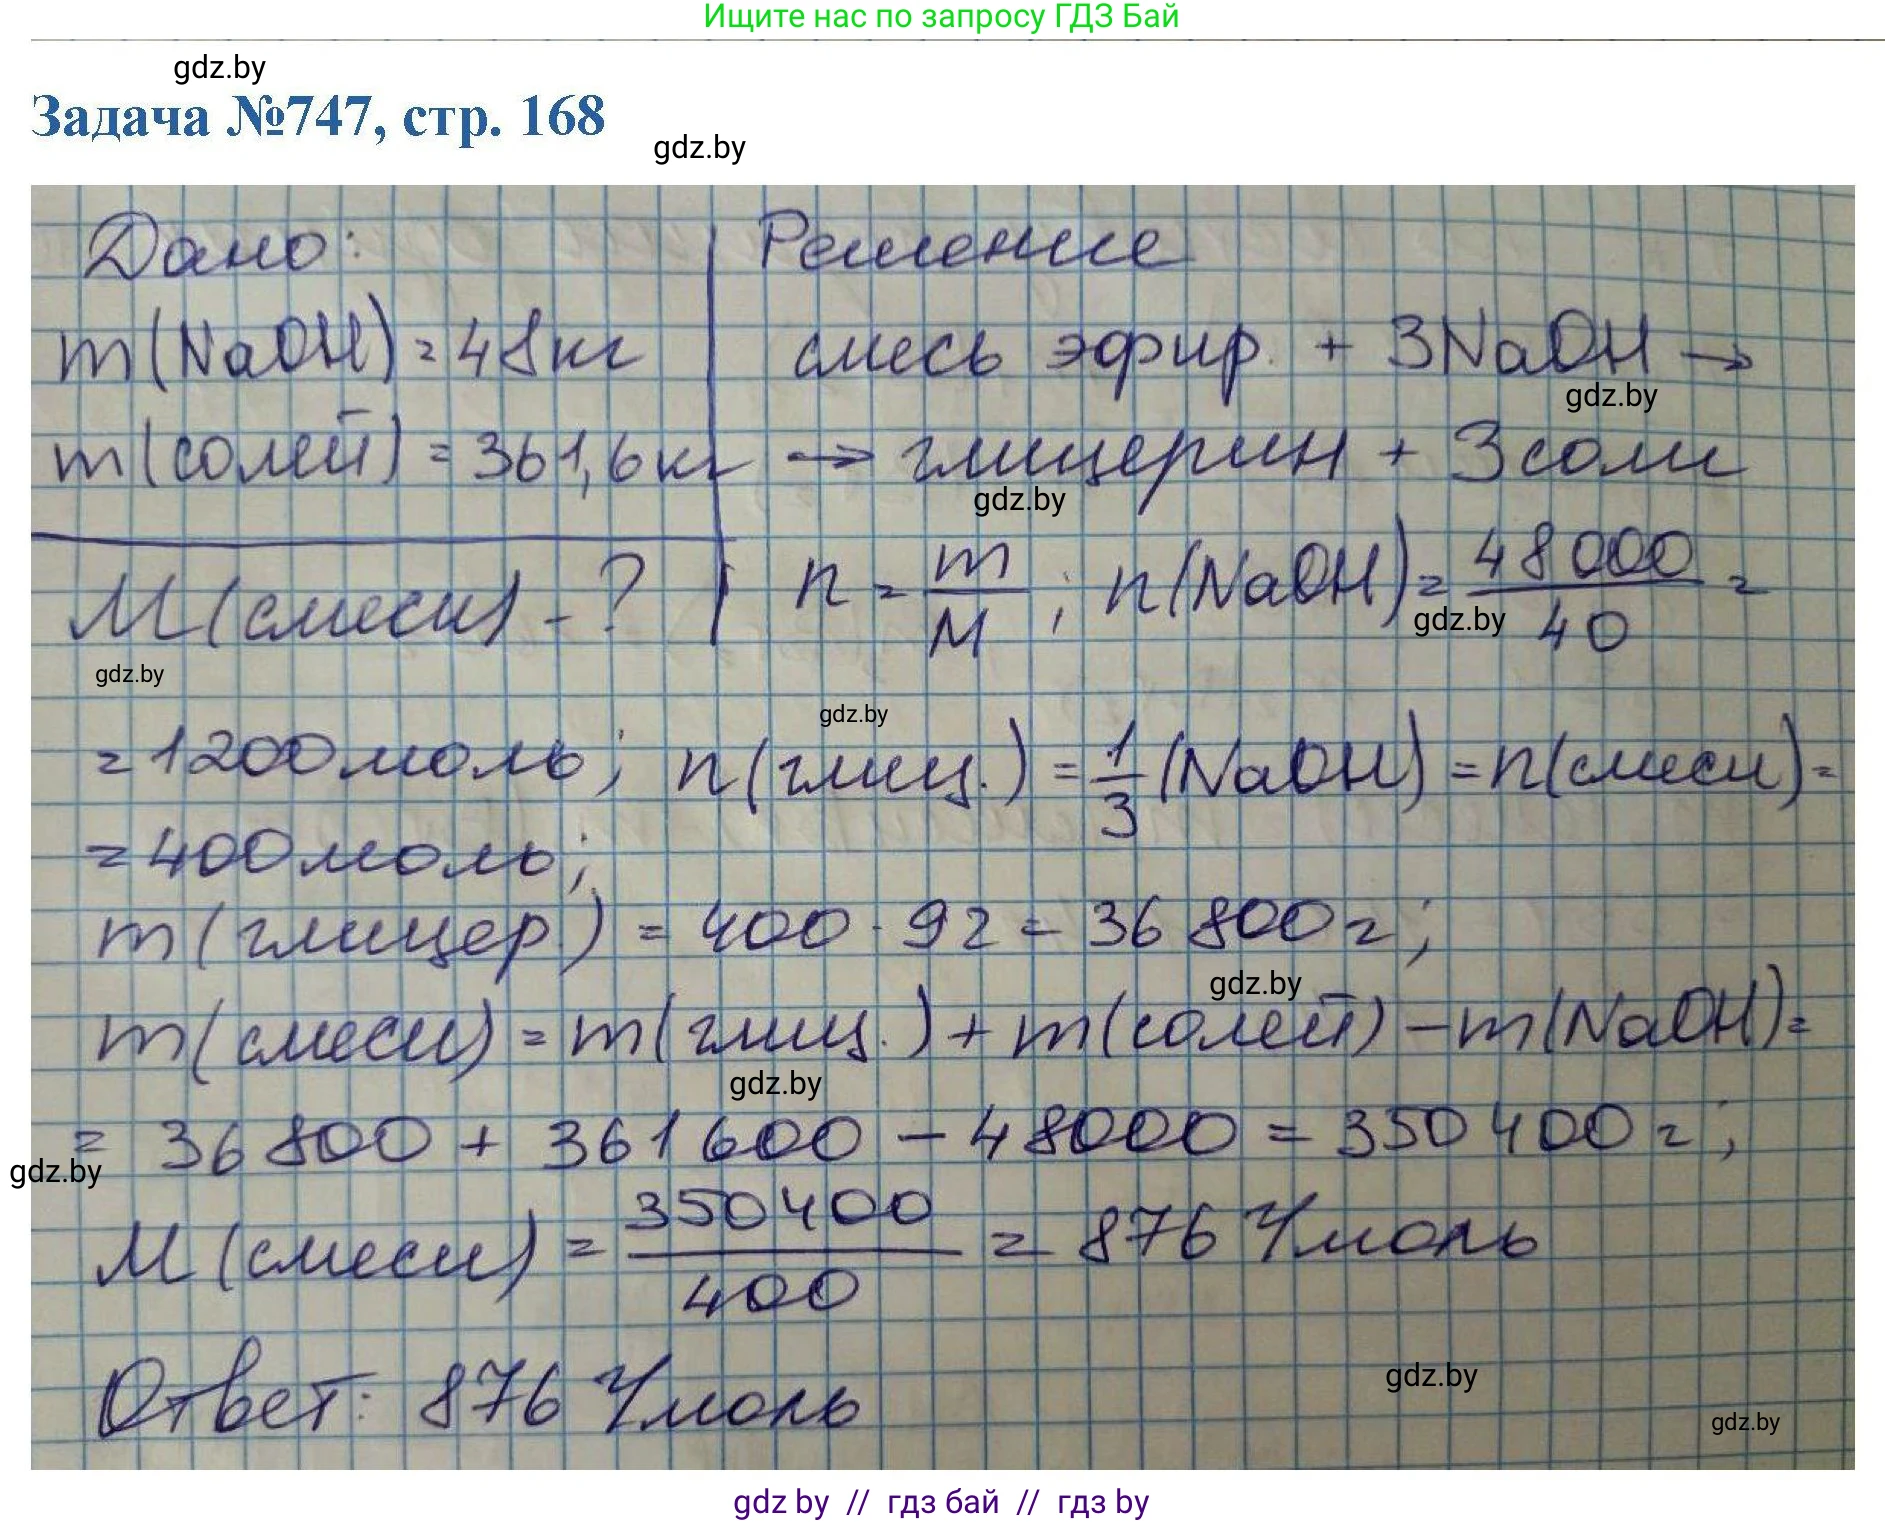 Ищите нас по запросу ГДЗ Бай
gdz.by
Задача №747, стр. 168
gdz.by
Дано:
Решение
m(NaOH)=48кг
смесь эфир. + 3NaOH →
gdz.by
m(солей)=361,6кг
→ глицерин + 3 соли
gdz.by
M(смеси) - ?
n = m/M ; n(NaOH) = 48000/40 =
gdz.by
gdz.by
gdz.by
= 1200 моль; n(глиц.) = 1/3 (NaOH) = n(смеси) =
= 400 моль;
m(глицер.) = 400 · 92 = 36 800 г;
gdz.by
m(смеси) = m(глиц.) + m(солей) - m(NaOH) =
gdz.by
= 36 800 + 361 600 - 48000 = 350 400 г;
gdz.by
M(смеси) = 350400/400 = 876 г/моль
Ответ: 876 г/моль
gdz.by
gdz.by
gdz by // гдз бай // гдз by